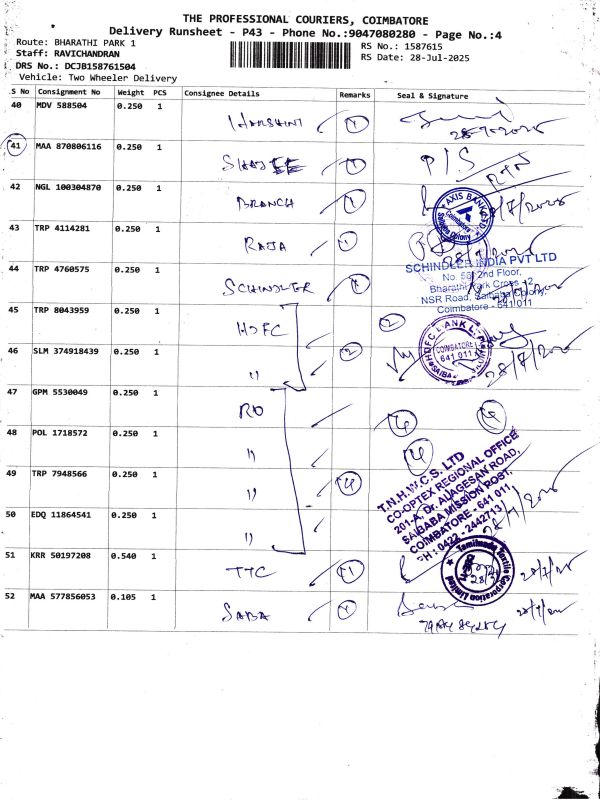 THE PROFESSIONAL COURIERS, COIMBATORE
Delivery Runsheet - P43 - Phone No.:9047080280 - Page No.:4
Route: BHARATHI PARK 1
Staff: RAVICHANDRAN
DRS No.: DCJB158761504
Vehicle: Two Wheeler Delivery
RS No.: 1587615
RS Date: 28-Jul-2025
S No Consignment No Weight PCS Consignee Details Remarks Seal & Signature
40 MDV 588504 0.250 1 HARSHINI 1
28-7-2025
41 MAA 870806116 0.250 1 1 P/S RTN
42 NGL 100304870 0.250 1 BRANCH 1
AXIS BANK LTD.
Coimbatore
Saibaba Colony
43 TRP 4114281 0.250 1 RAJA 1
44 TRP 4760575 0.250 1 SCHINDLER 1
SCHINDLER INDIA PVT LTD
No. 56, 2nd Floor,
Bharathi Park Cross - 2,
NSR Road, Saibaba Colony,
Coimbatore - 641 011
45 TRP 8043959 0.250 1 HDFC 2
46 SLM 374918439 0.250 1 " 2
HDFC BANK L
COIMBATORE
641 011
SAIBA
28/7/2025
47 GPM 5530049 0.250 1 RO 4 4
48 POL 1718572 0.250 1 " 4
49 TRP 7948566 0.250 1 " 4
50 EDQ 11864541 0.250 1 "
T.N.H.W.C.S. LTD
CO-OPTEX REGIONAL OFFICE
201-A, Dr. ALAGESAN ROAD,
SAIBABA MISSION POST,
COIMBATORE - 641 011,
PH : 0422 - 2442713
51 KRR 50197208 0.540 1 TTC 1
Tamilnadu Textile Corporation Limited
28/7/25
52 MAA 577856053 0.105 1 SABA 1